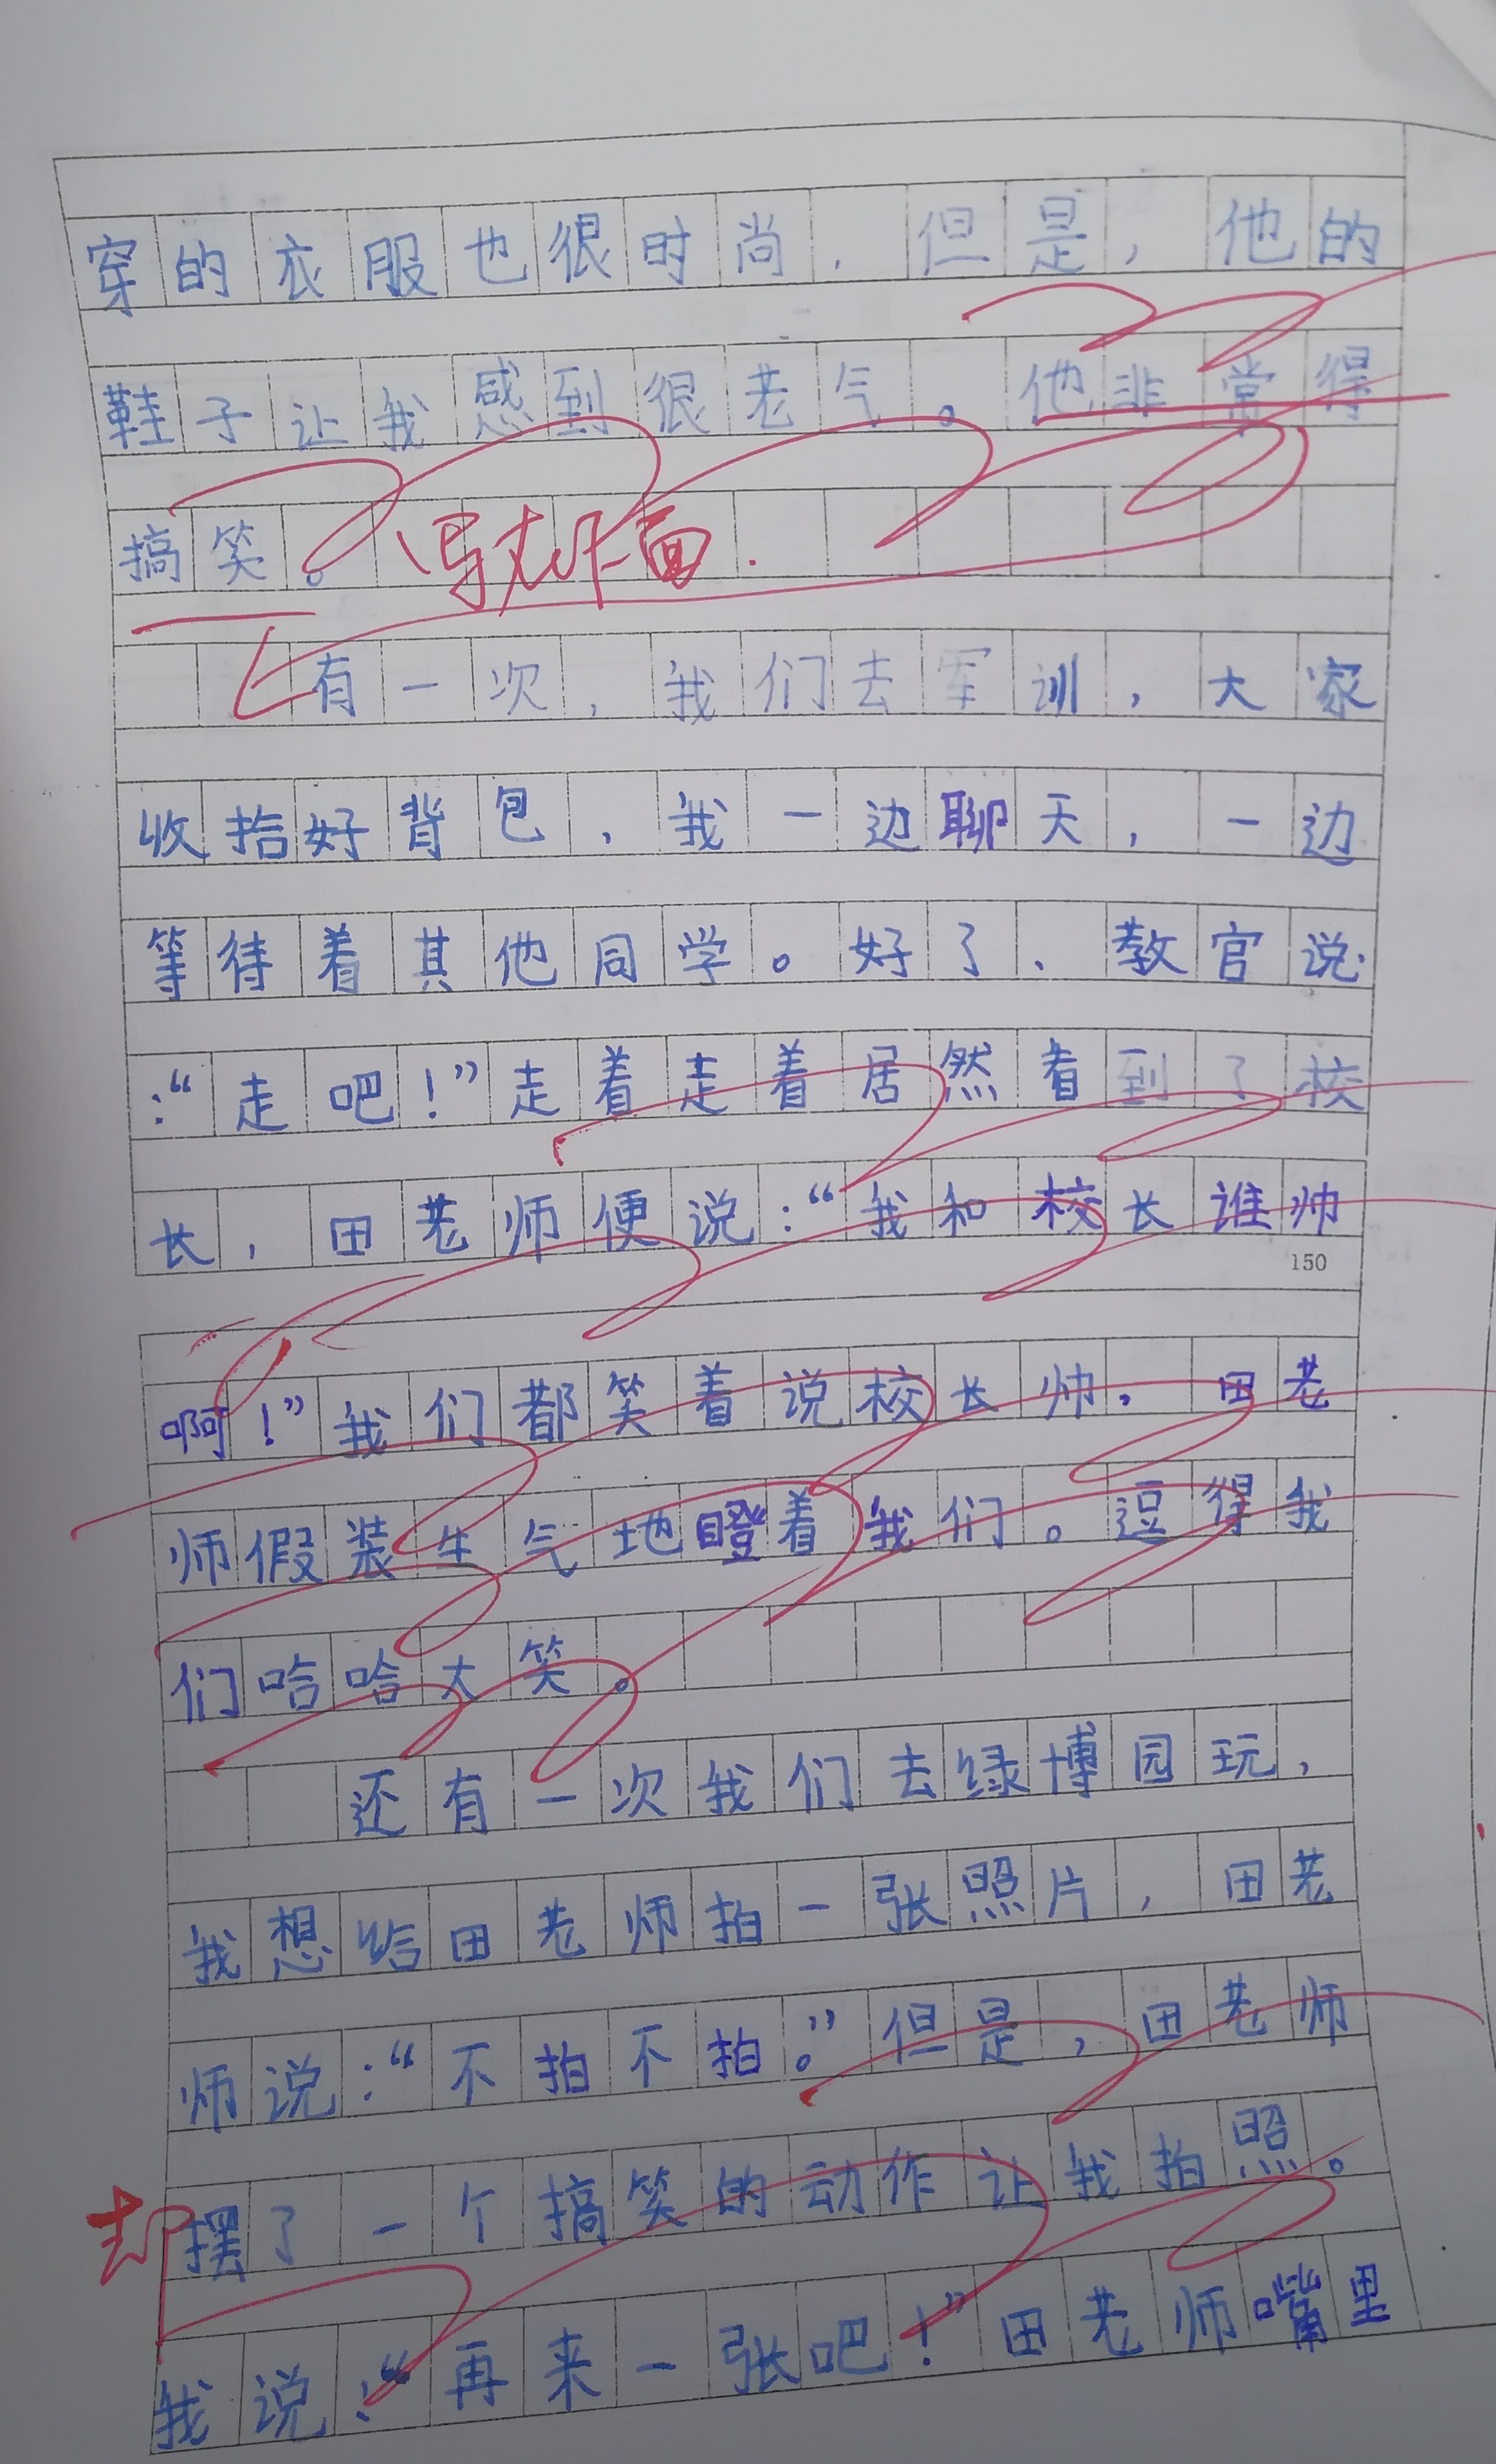 穿的衣服也很时尚，但是，他的
鞋子让我感到很老气。他非常得
搞笑。写在下面.
有一次，我们去军训，大家
收拾好背包，我一边聊天，一边
等待着其他同学。好了、教官说
：“走吧！”走着走着居然看到了校
长，田老师便说：“我和校长谁帅
150
啊！”我们都笑着说校长帅，田老
师假装生气地瞪着我们。逗得我
们哈哈大笑。
还有一次我们去绿博园玩，
我想给田老师拍一张照片，田老
师说：“不拍不拍。”但是，田老师
却摆了一个搞笑的动作让我拍照。
我说：“再来一张吧！”田老师嘴里